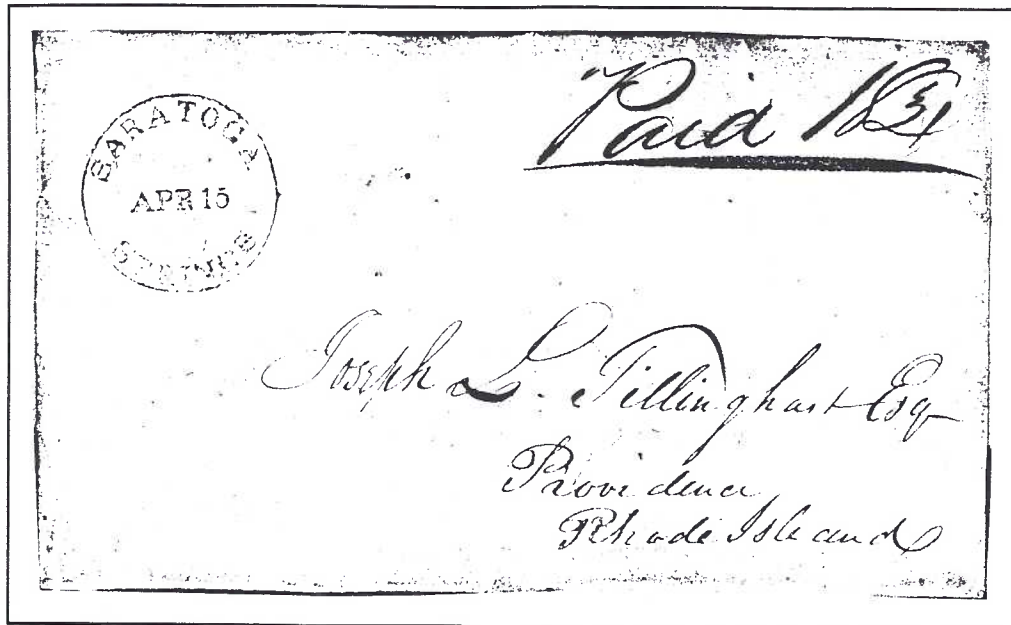 SARATOGA
APR 15
SPRINGS
Paid 18 3/4
Joseph L. Tillinghast Esq
Providence
Rhode Island